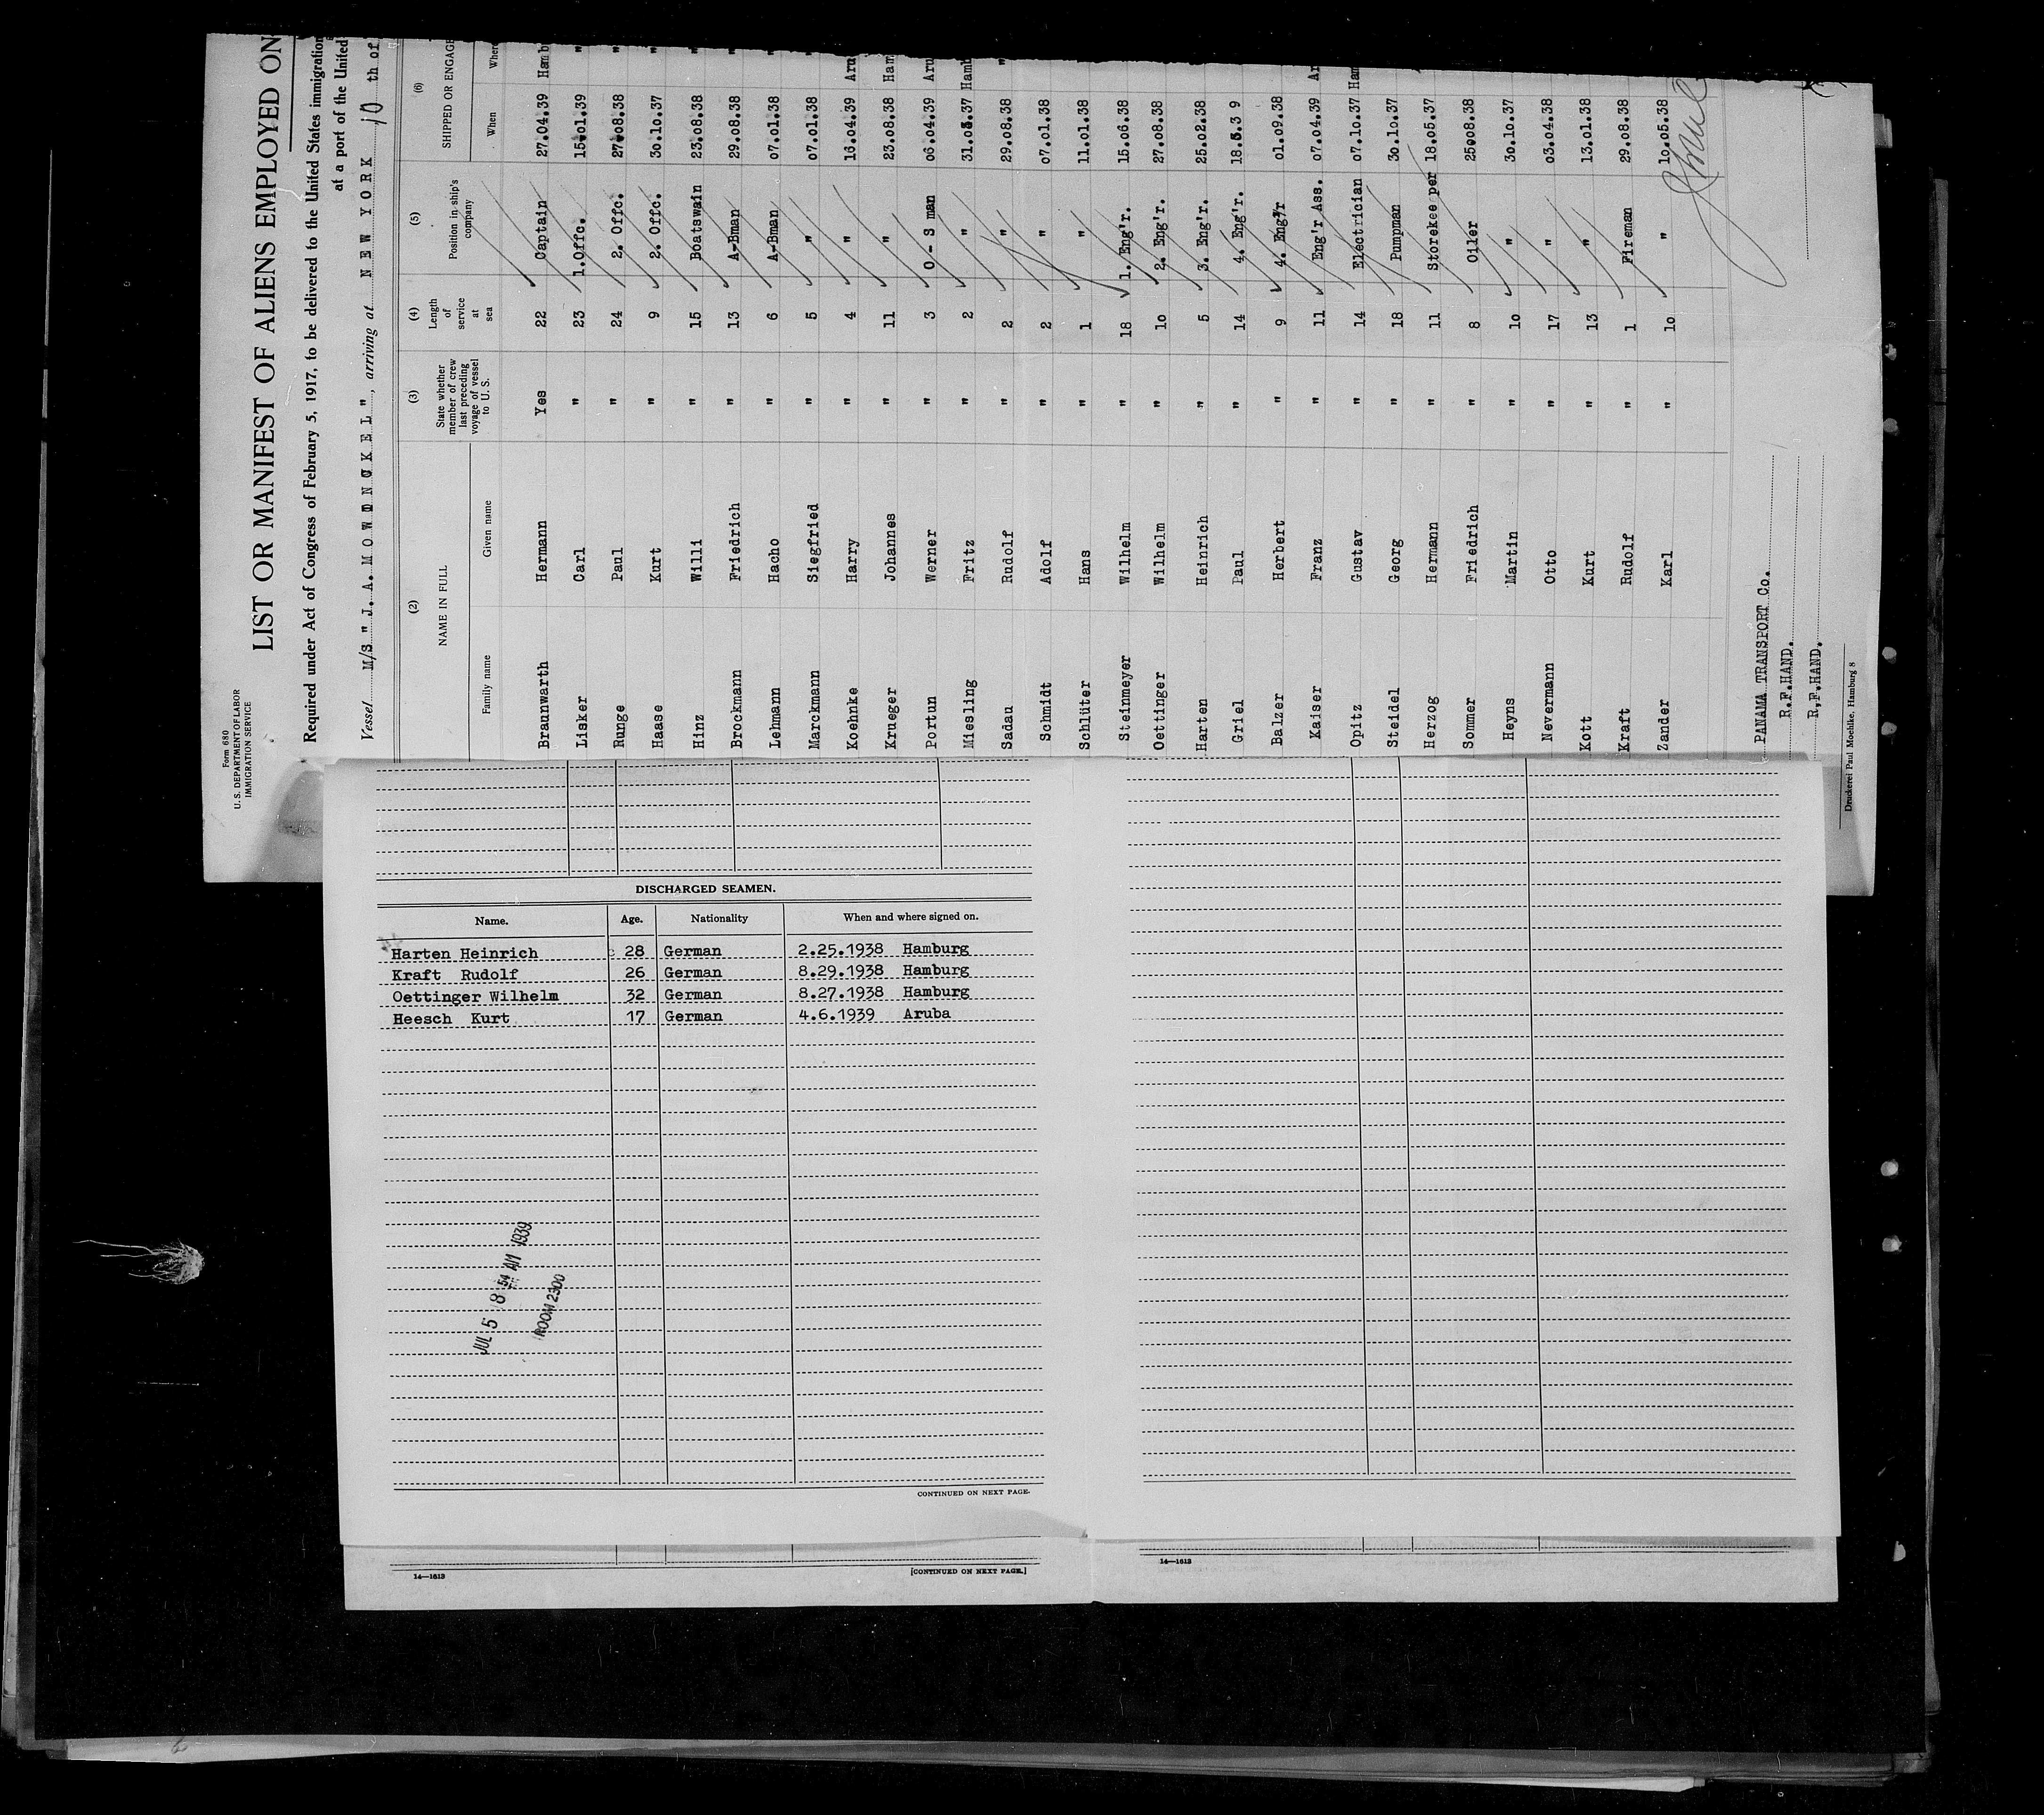 Form 680
U. S. DEPARTMENT OF LABOR
IMMIGRATION SERVICE
LIST OR MANIFEST OF ALIENS EMPLOYED ON
Required under Act of Congress of February 5, 1917, to be delivered to the United States immigration
at a port of the United
Vessel M/S "J. A. MOWINCKEL", arriving at NEW YORK 10 th of
(2) (3) (4) (5) (6)
NAME IN FULL State whether member of crew last preceding voyage of vessel to U. S. Length of service at sea Position in ship's company SHIPPED OR ENGAGE
Family name Given name When Where
Braunwarth Hermann Yes 22 Captain 27.04.39 Hamb
Lisker Carl " 23 1.Offc. 15.01.39 "
Runge Paul " 24 2. Offc. 27.08.38 "
Haase Kurt " 9 2. Offc. 30.10.37 "
Hinz Willi " 15 Boatswain 23.08.38 "
Brockmann Friedrich " 13 A-Bman 29.08.38 "
Lehmann Hacho " 6 A-Bman 07.01.38 "
Marckmann Siegfried " 5 " 07.01.38 "
Koehnke Harry " 4 " 16.04.39 Aru
Krueger Johannes " 11 " 23.08.38 Ham
Portun Werner " 3 O - S man 06.04.39 Aru
Miesling Fritz " 2 " 31.8.37 Hamb
Sadau Rudolf " 2 " 29.08.38 "
Schmidt Adolf " 2 " 07.01.38
Schlüter Hans " 1 " 11.01.38
Steinmeyer Wilhelm " 18 1. Eng'r. 15.06.38
Oettinger Wilhelm " 10 2. Eng'r. 27.08.38
Harten Heinrich " 5 3. Eng'r. 25.02.38
Griel Paul " 14 4. Eng'r. 18.3.3 9
Balzer Herbert " 9 4. Eng'r 01.09.38
Kaiser Franz " 11 Eng'r Ass. 07.04.39 Ar
Opitz Gustav " 14 Electrician 07.10.37 Ham
Steidel Georg " 18 Pumpman 30.10.37
Herzog Hermann " 11 Storekee per 18.05.37
Sommer Friedrich " 8 Oiler 25008.38
Heyns Martin " 10 " 30.10.37
Nevermann Otto " 17 " 03.04.38
Kott Kurt " 13 " 13.01.38
Kraft Rudolf " 1 Fireman 29.08.38
Zander Karl " 10 " 10.05.38
PANAMA TRANSPORT Co.
R.F.HAND.
R.F.HAND.
Druckerei Paul Moehlke, Hamburg 8
DISCHARGED SEAMEN.
Name. Age. Nationality When and where signed on.
Harten Heinrich 28 German 2.25.1938 Hamburg
Kraft Rudolf 26 German 8.29.1938 Hamburg
Oettinger Wilhelm 32 German 8.27.1938 Hamburg
Heesch Kurt 17 German 4.6.1939 Aruba
JUL 5 8 54 AM 1939
ROOM 2300
CONTINUED ON NEXT PAGE.
14—1613
[CONTINUED ON NEXT PAGE.]
14—1613